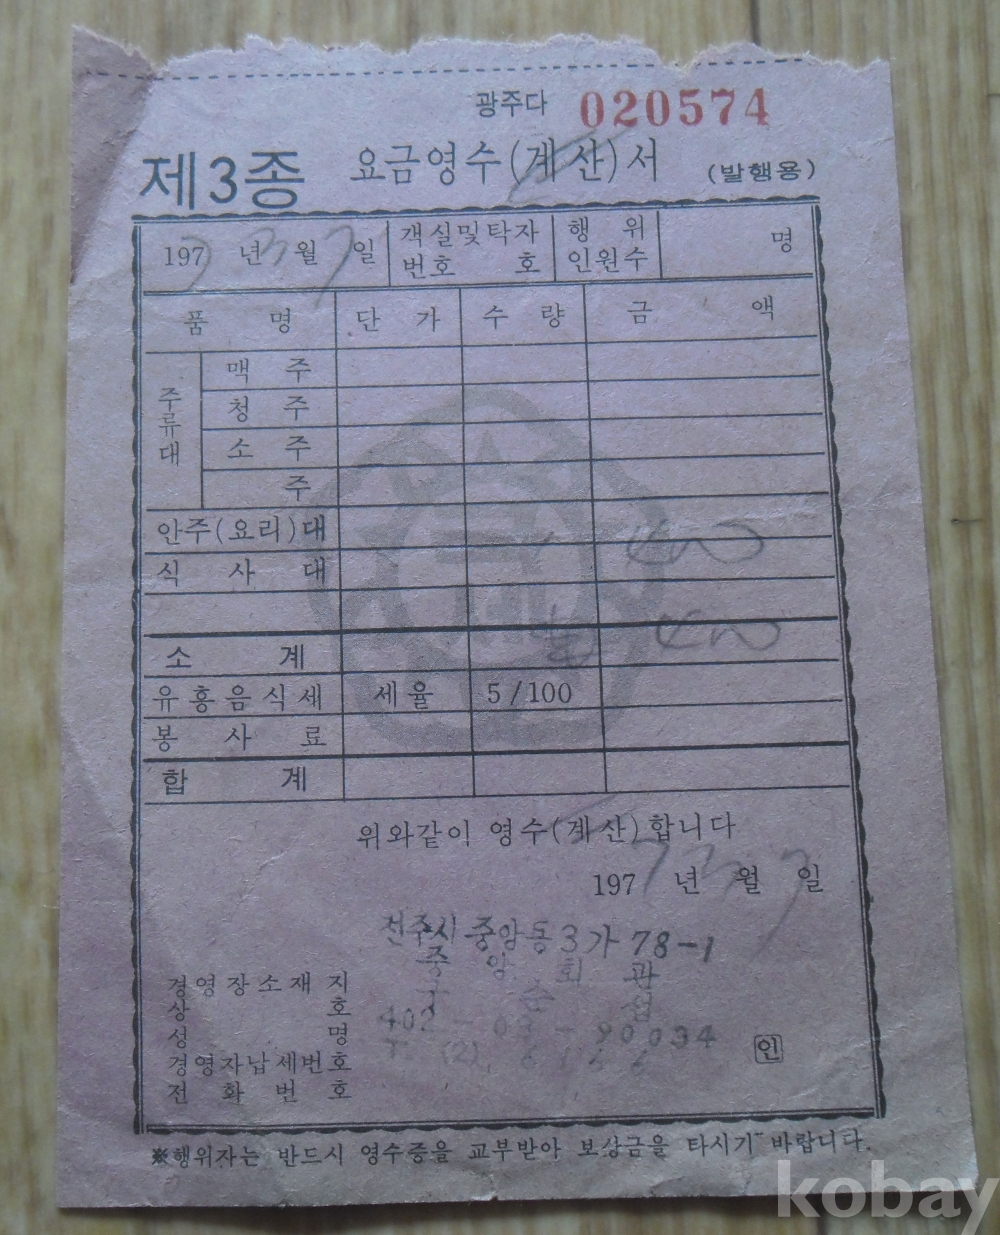 광주다 020574
제3종 요금영수(계산)서 (발행용)
1977년 3월 7일 객실및탁자번호 호 행위인원수 명
품명 단가 수량 금액
주류대
맥주
청주
소주
주
안주(요리)대
식사대
소계
유흥음식세 세율 5/100
봉사료
합계
위와같이 영수(계산)합니다
1977년 3월 7일
전주시 중앙동3가 78-1
중앙회관
경영장소재지
상호
성명
402-03-90034
경영자납세번호
인
전화번호
※행위자는 반드시 영수증을 교부받아 보상금을 타시기 바랍니다.
kobay